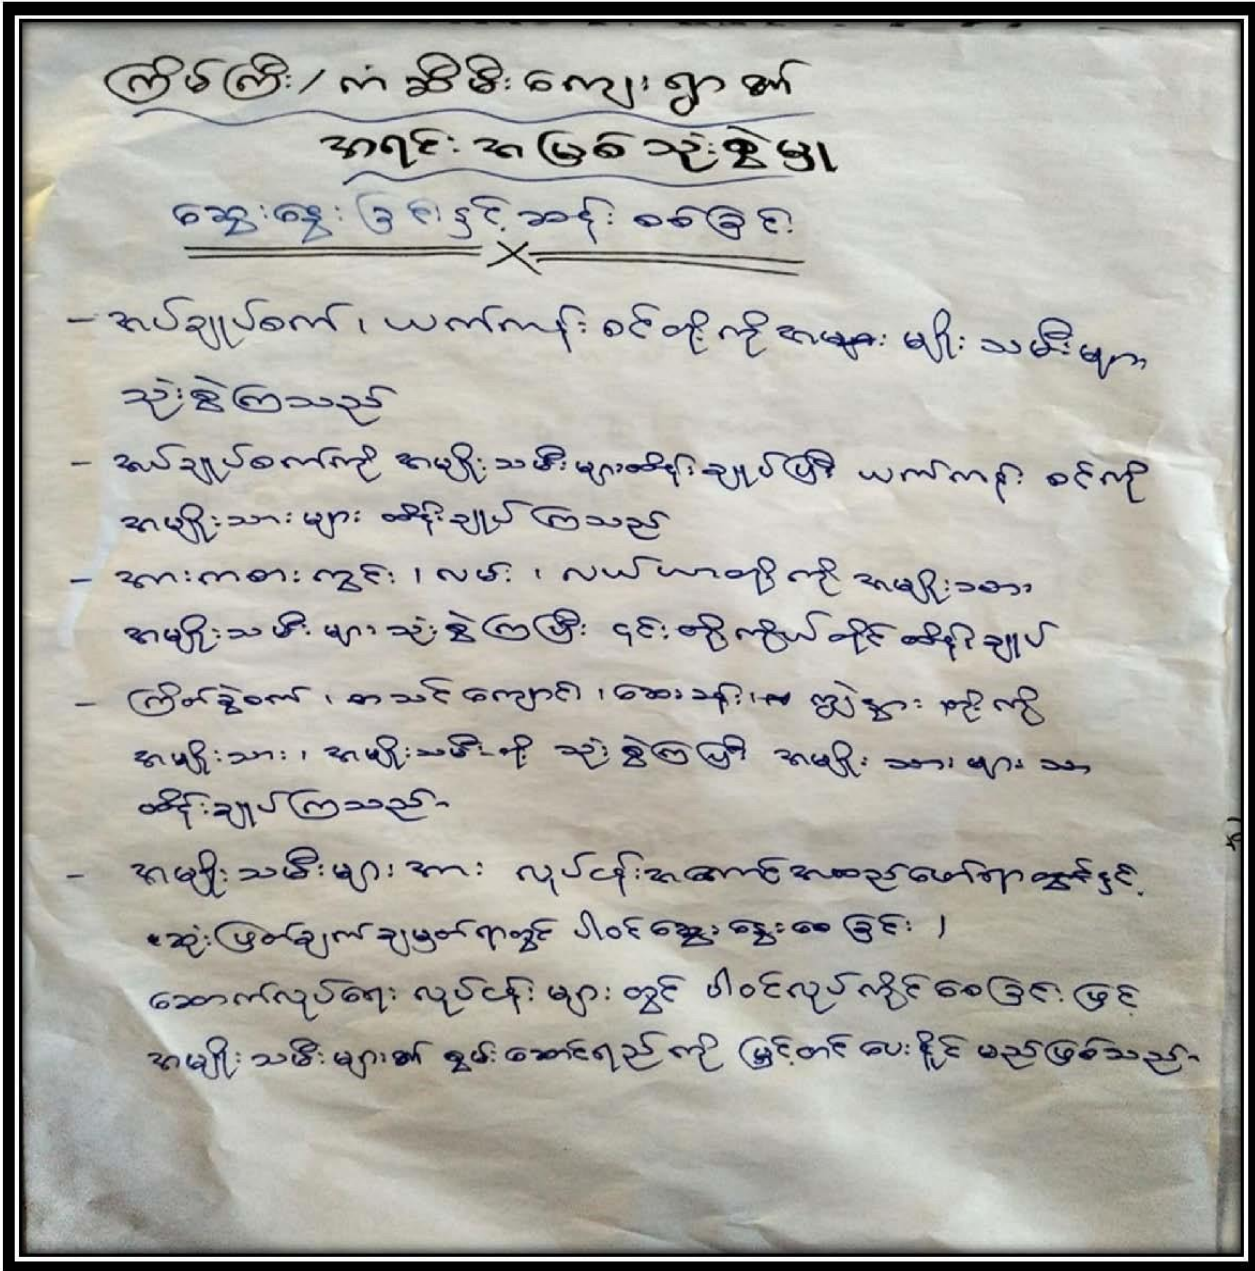 ကြိမ်ကြီး/ကံဆီမီးကျေးရွာ၏
အရင်းအမြစ်သုံးစွဲမှု
ဆွေးနွေးခြင်းနှင့်ဆန်းစစ်ခြင်း
- အပ်ချုပ်စက်၊ ယက်ကန်းစင်တို့ကိုအမျိုးသမီးများ
သုံးစွဲကြသည်
- အပ်ချုပ်စက်ကို အမျိုးသမီးများထိန်းချုပ်ပြီး ယက်ကန်းစင်ကို
အမျိုးသားများ ထိန်းချုပ်ကြသည်
- အားကစားကွင်း၊ လမ်း၊ လယ်ယာတို့ကို အမျိုးသား၊
အမျိုးသမီးများသုံးစွဲကြပြီး ၎င်းတို့ကိုယ်တိုင် ထိန်းချုပ်
- ကြိတ်ခွဲစက်၊ စာသင်ကျောင်း၊ ဆေးခန်း၊ ကျွဲနွား တို့ကို
အမျိုးသား၊ အမျိုးသမီးတို့ သုံးစွဲကြပြီး အမျိုးသားများသာ
ထိန်းချုပ်ကြသည်။
- အမျိုးသမီးများအား လုပ်ငန်းအကောင်အထည်ဖော်ရာတွင်နှင့်
ဆုံးဖြတ်ချက်ချမှတ်ရာတွင် ပါဝင်ဆွေးနွေးစေခြင်း၊
ဆောက်လုပ်ရေးလုပ်ငန်းများတွင် ပါဝင်လုပ်ကိုင်စေခြင်းဖြင့်
အမျိုးသမီးများ၏ စွမ်းဆောင်ရည်ကို မြှင့်တင်ပေးနိုင်မည်ဖြစ်သည်။